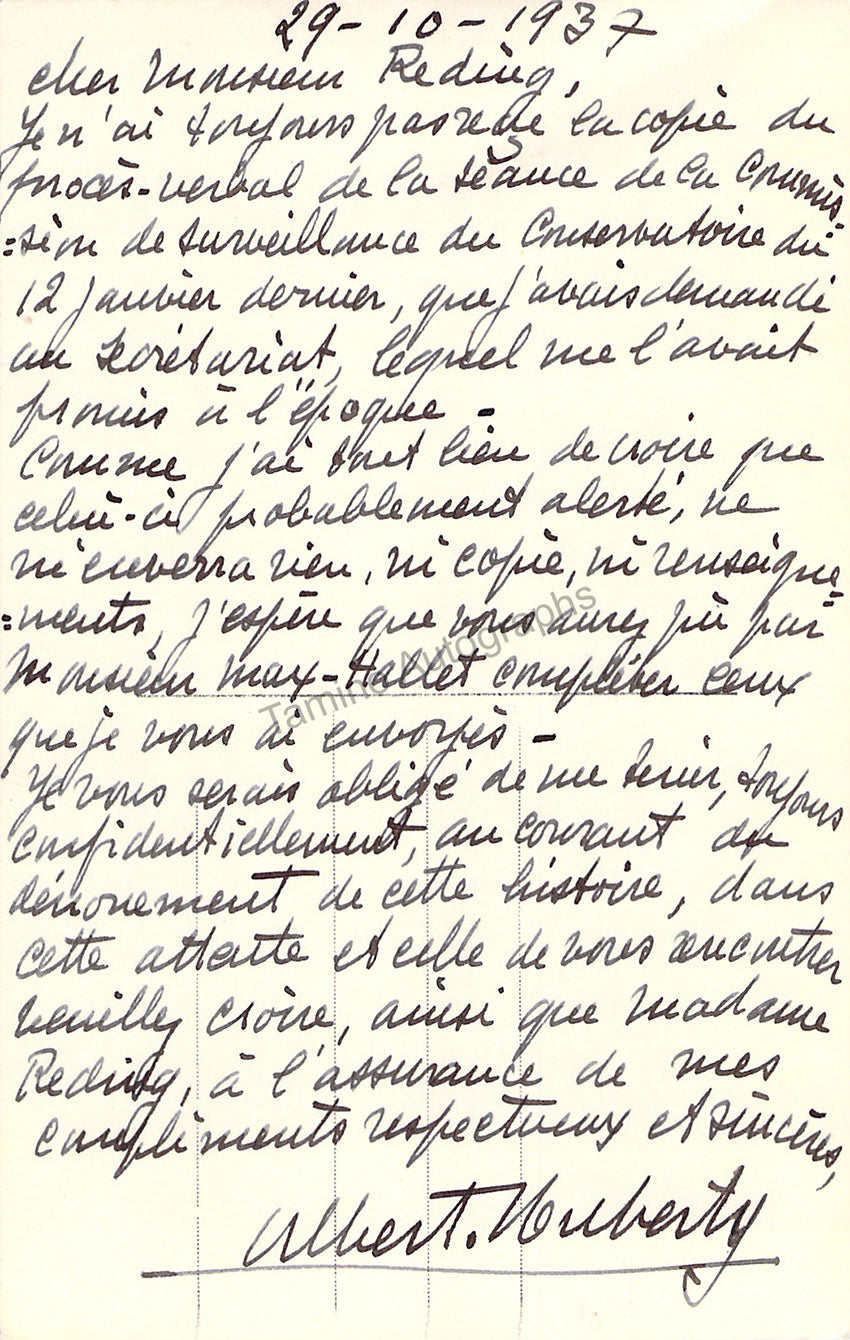 29-10-1937
cher Monsieur Reding,
Je n'ai toujours pas reçu la copie du
procès-verbal de la séance de la Commis-
=sion de surveillance du Conservatoire du
12 janvier dernier, que j'avais demandé
au secrétariat, lequel me l'avait
promis à l'époque -
Comme j'ai tout lieu de croire que
celui-ci probablement alerté, ne
m'enverra rien, ni copie, ni renseigne=
=ments, j'espère que vous aurez pu par
Monsieur Max-Hallet compléter ceux
Tamino Autographs
que je vous ai envoyés -
Je vous serais obligé de me tenir, toujours
confidentiellement, au courant du
dénouement de cette histoire, dans
cette attente et celle de vous rencontrer
veuillez croire, ainsi que Madame
Reding, à l'assurance de mes
compliments respectueux et sincères,
Albert. Huberty